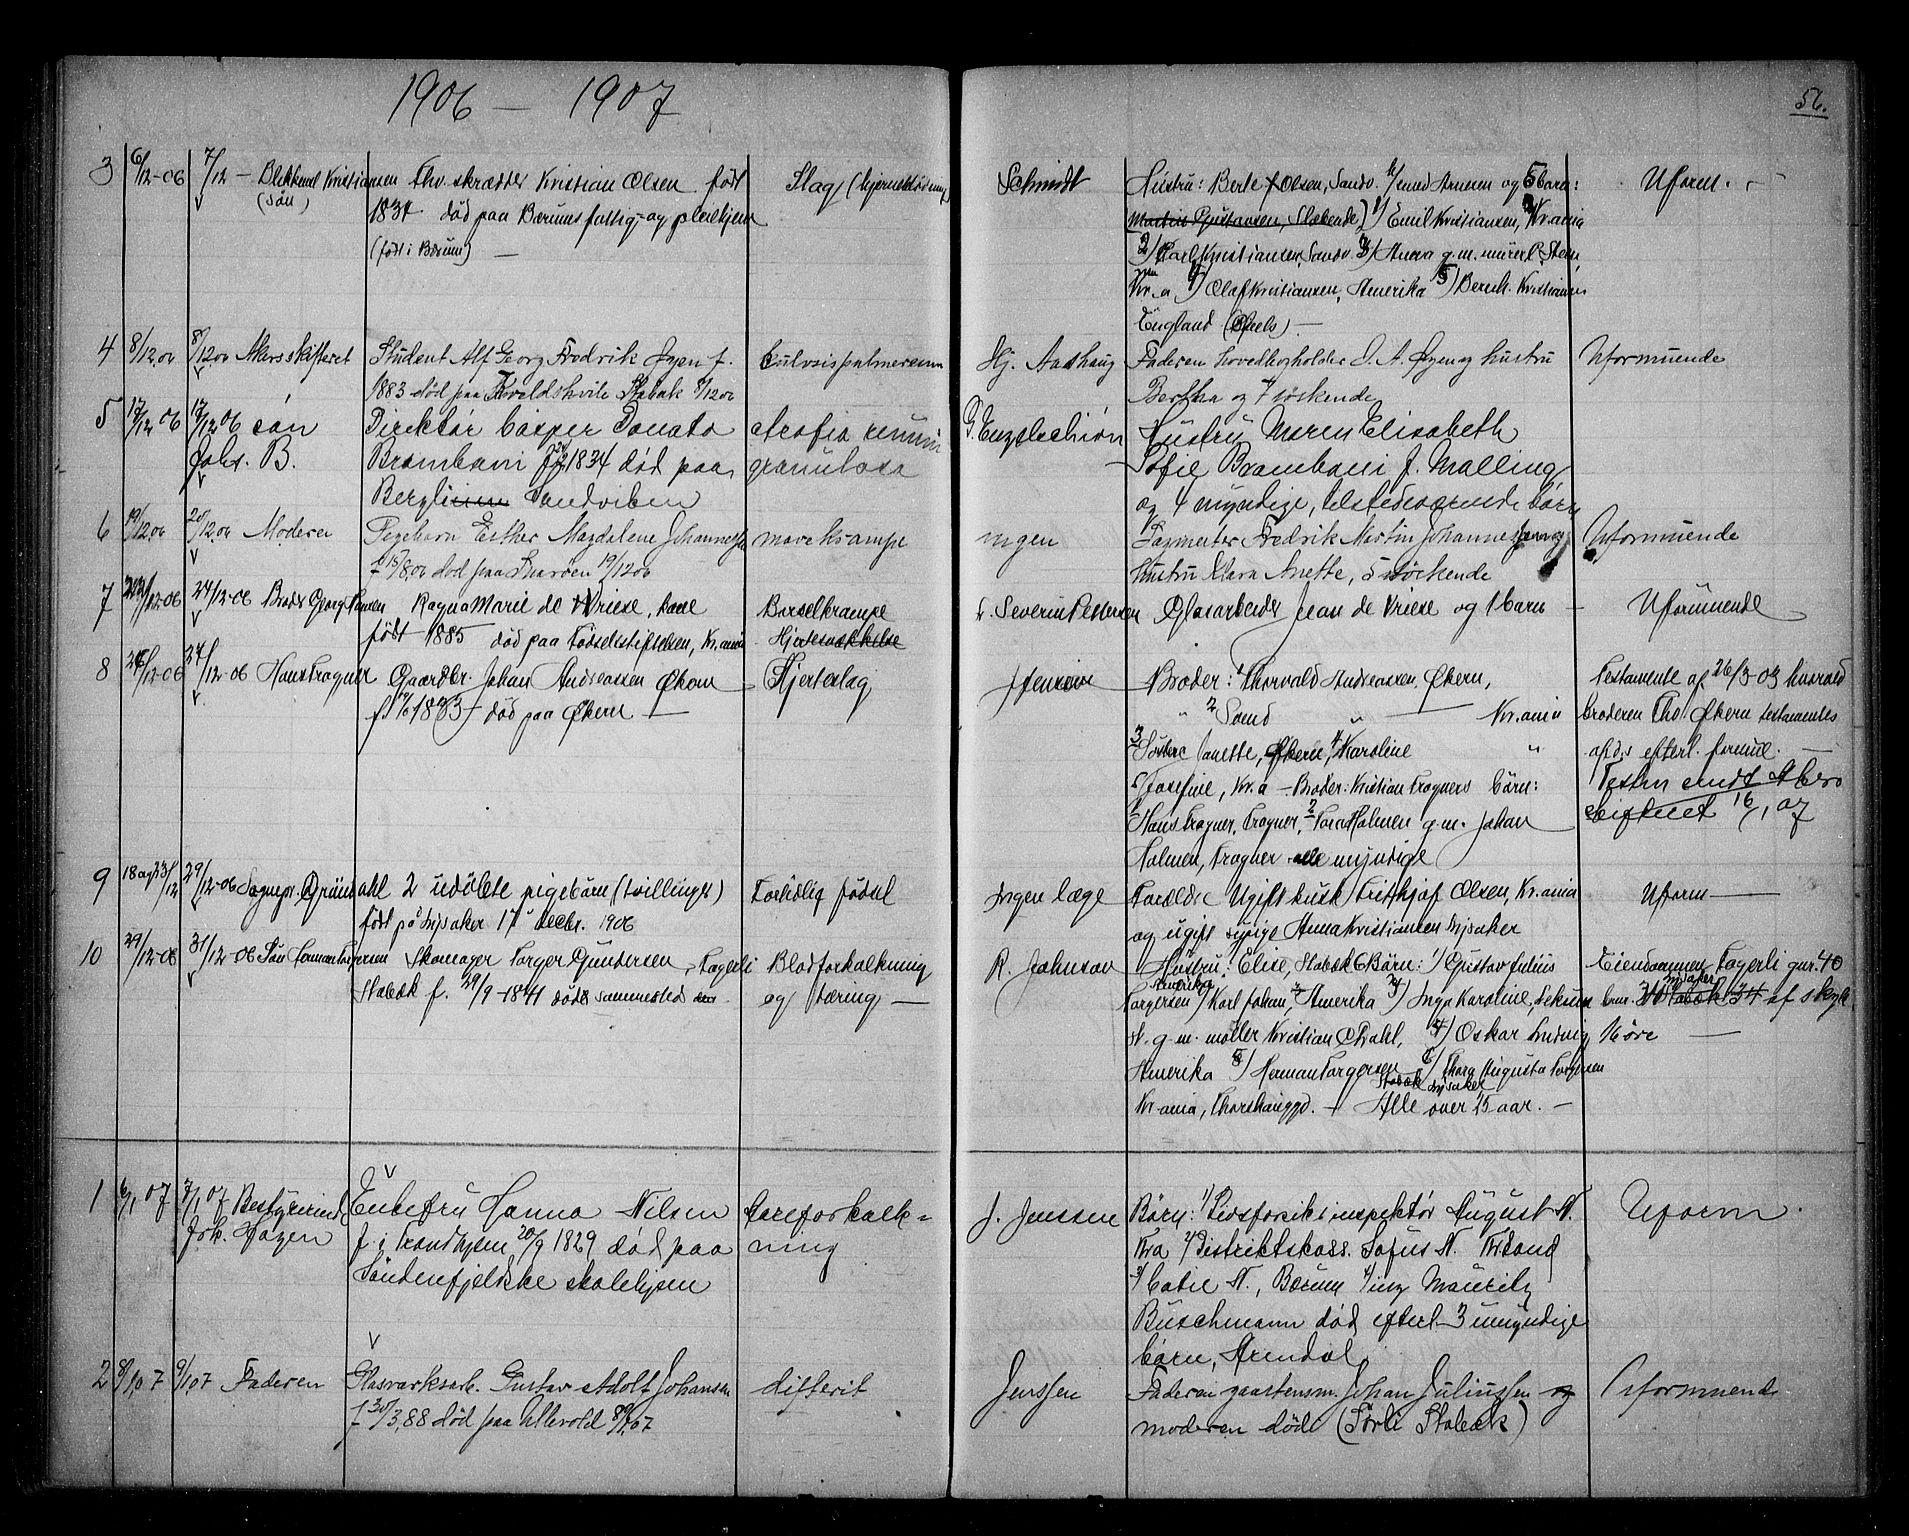 1906 — 1907
56.
3 6/12-06 7/12 — Blikkensl Kristiansen (søn)
Fhv. skrædder Kristian Olsen født
1834 død paa Bærums fattig- og pleiehjem
(født i Bærum) —
Slag (hjerneblødning)
Schmidt
Hustru: Berte f Olsen, Sandv. og 5 børn:
Martin Gustavsen, Slæbende) 1) Emil Kristiansen, Kr.ania
2) Karl Kristiansen, Sandv 3) Anna g.m. murer
Kr.a 4) Olaf Kristiansen, Amerika 5) Bernh. Kristiansen
England (Sjøls) —
Uform. —
4 8/12.06 8/12.06 Akers skifteret
Student Alf Georg Fredrik Øyen f.
1883 død paa Kveldshvile Stabæk 8/12 06
Hj. Aashaug
Faderen Hovedbogholder O. A. Øyen og hustru
Bertha og 7 søskende
Uformuende
5 17/12 06 17/12 06 søn
Johs. B.
Direktør Casper Donato
Brambani 1834 død paa
Bergli Sandviken
atrofia renum
granulosa
G. Engelschiøn
Hustru Maren Elisabeth
Sofie Brambani f. Malling
og 4 myndige, tilstedeværende børn
6 19/12 06 20/12.06 Moderen
Pigebarn Esther Magdalene Johannessen
f 15/8 06 død paa Snarøen 19/12 06
mavekrampe
ingen
Fagmester Fredrik Martin Johannessen og
hustru Klara Anette, 5 søskende
Uformuende
7 /12-06 24/12-06 Broder Georg Hansen
Ragna Marie de Vriese, kone
født 1885 død paa Fødselsstiftelsen, Kr.ania
Barselkrampe
Hjertesvækkelse
Severin Petersen
Glasarbeider Jean de Vriese og 1 barn —
Uformuende
8 /12-06 24/12-06 Hans Frogner
Gaardbr. Johan Andreassen Økern
f. 1833 død paa Økern —
Hjerteslag
Jensen
Brødre: 1 Thorvald Andreassen, Økern,
" 2 Samd " — Kr.ania
3 Søstre Janette, Økern, 4 Karoline "
5 Josefine, Kr.a — Broder: Kristian Frogners børn:
1 Hans Frogner, Frogner, 2 Tora Holmen g.m. Johan
Holmen, Frogner alle myndige
Testamente af 26/3-03 hvorved
broderen Tho Økern testamentes
afd's efterl. formue. —
Testm sendt Akers
skifteret 16/1 07
9 18 og 23/12 29/12-06 Sognepr. Grøndahl
2 udøbte pigebørn (tvillinger)
født på Lysaker 17 decbr. 1906
Fortidlig fødsel
Ingen læge
Forældre Ugift kusk Fritjof Olsen, Kr.ania
og ugift sypige Anna Kristiansen Lysaker
Uform —
10 29/12-06 31/12-06 Søn Herman Torgersen
Skomager Torger Gundersen, Fagerli
Stabæk f. 29/9-1841 død sammested
Blodforkalkning
og tæring —
R. Johnson
Hustru: Elise, Stabæk 6 Børn: 1) Gustav Julius
Torgersen Amerika 2) Karl Johan, Amerika 3) Inga Karoline,
g.m. møller Kristian Dahl, 4) Oskar Ludvig
Amerika 5) Herman Torgersen Stabæk Lysaker 6) Thora Augusta Torgersen
Kr.ania, Thorshauggd. — Alle over 15 aar. —
Eiendommen Fagerli gnr. 40
bnr. Lysaker Stabæk 34 af skyld
16 øre —
1 6/1 07 7/1 07 Bestyrerinde
frk. Hagen
Enkefru Hanna Nilsen
f. i Trondhjem 20/9 1829 død paa
Søndenfjeldske skolehjem
Aareforkalk=
ning
J. Jenssen
Børn: 1) Livsforsik's inspektør August N.
Kra 2) Distriktskass. Sofus N. Kr.sand
3) Catie N., Bærum 4) ing Mauritz
Buschmann død efterl 3 umyndige
børn, Arendal
Uform.
2 8/1 07 9/1 07 Faderen
Glasværksarb. Gustav Adolf Johansen
f 30/3,88 død paa Ullevold 8/1 07
difterit
Jenssen
Faderen gaardsm. Johan Juliussen og
moderen døde (Sørli Stabæk)
Uformuende